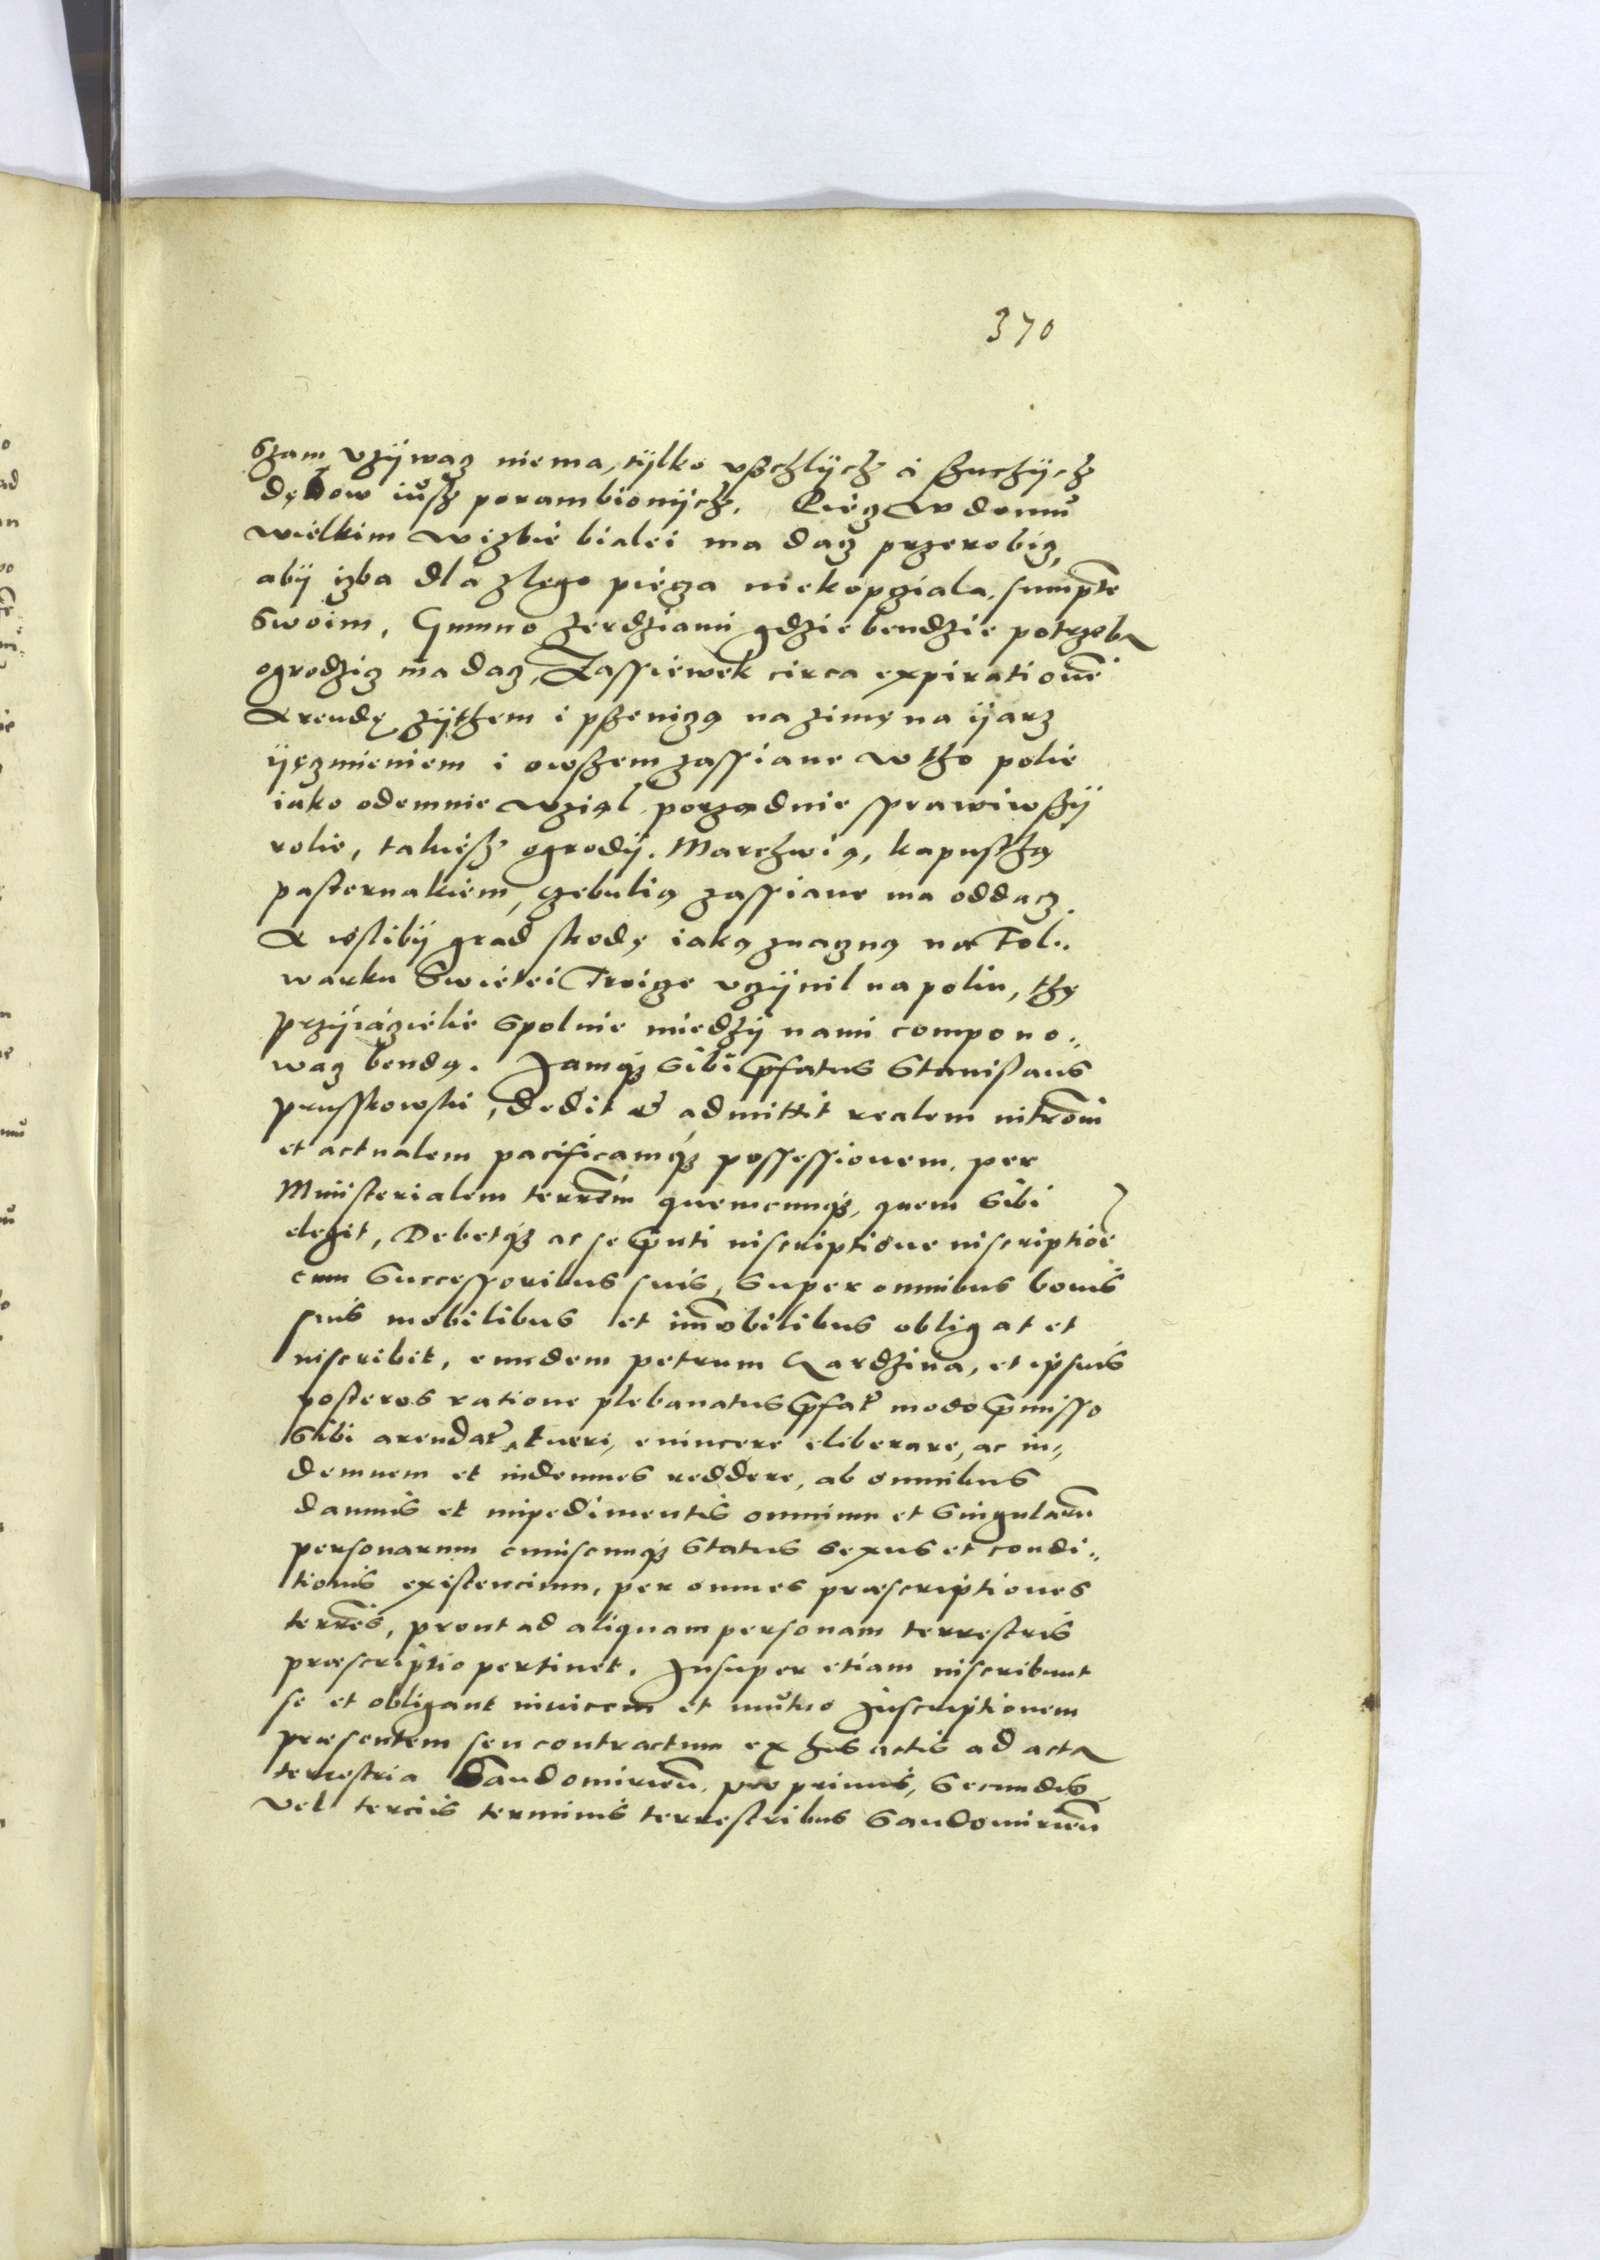 370
Szam uzÿwaz niema, tÿlko usßchlÿch i ßuchÿch
dębow iusz porambionÿch. Piecz w domu
wielkim w izbie bialei ma dacz przerobicz,
abÿ izba dla zlego pieca niekopcziala, sumpte
swoim, Gumno zerdziami gdzie bendzie potrzeba
ogrodzicz ma dacz, Zassiewek circa expiratione
Arendę zÿthem i pßenicą na zimę na ÿarz
ÿęczmieniem i owßem zassiane w tho polie
iako odemnie wziąl porządnie sprawiwßÿ
rolie, takiesz ogrodÿ. Marchwią, kapusthą
pasternakiem, czebulią zassiane ma oddacz.
A iesliby grad skodę iaką znaczną na Fol„
warku Swietei Troicze uczÿnil na poliu, thę
przÿiaczielie spolnie miedzÿ nami compono„
wacz bendą. Jamq3 sibi pfatus Stanislaus
prusskowski, dedit et admittit realem intrōm
et actualem pacificamq3 possessionem, per
Ministerialem terrēm quemcunq3, quem sibi
elegit, Debetq3 ac se pnti inscriptione inscriptiōe
cum Successoribus suis, super omnibus bonis
suis mobilibus et imōbilibus obligat et
inscribit, eundem petrum Kardzina, et ipsius
posteros ratione plebanatus pfat modo pmisso
sibi arendat, tueri, evincere eliberare, ac in„
demnem et indemnes reddere, ab omnibus
damnis et impedimentis omnium et singularū
personarum cuiuscunq3 status sexus et condi„
tionis existencium, per omnes præscriptiones
terrēs, prout ad aliquam personam terrestris
præscriptio pertinet. Insuper etiam inscribunt
se et obligant invicem et mutuo Inscriptionem
præsentem seu contractum ex his actis ad acta
terrestria Sandomirieñ, pro primis, secundis
vel terciis terminis terrestribus Sandomirieñ